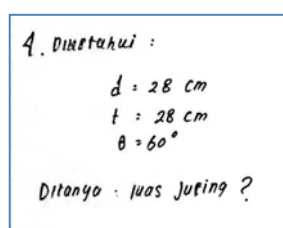 4. Diketahui :
d : 28 cm
t : 28 cm
θ = 60°
Ditanya : luas juring ?